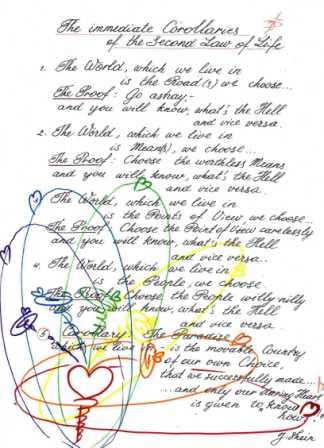 The immediate Corollaries
of the Second Law of Life
1. The World, which we live in
is the Road(s) we choose...
The Proof: Go astray,-
and you will know, what's the Hell
and vice versa
2. The World, which we live in
is Mean(s), we choose...
The Proof: Choose the worthless Means
and you will know, what's the Hell
and vice versa.
The World, which we live in
is the Points of View, we choose...
The Proof: Choose the Point of View carelessly
and you will know, what's the Hell
and vice versa..
4. The World, which we live in
is the People, we choose
The Proof: Choose the People willy nilly
and you will know, what's the Hell
and vice versa
5. Corollary: The Paradise,
which we live in, - is the movable Country
of our own Choice,
that we successfully made....
...and only our Heart
is given to know
how
J. Shein